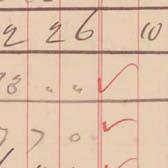 2 2 6 10
78 " " ✓
7 7 0 ✓